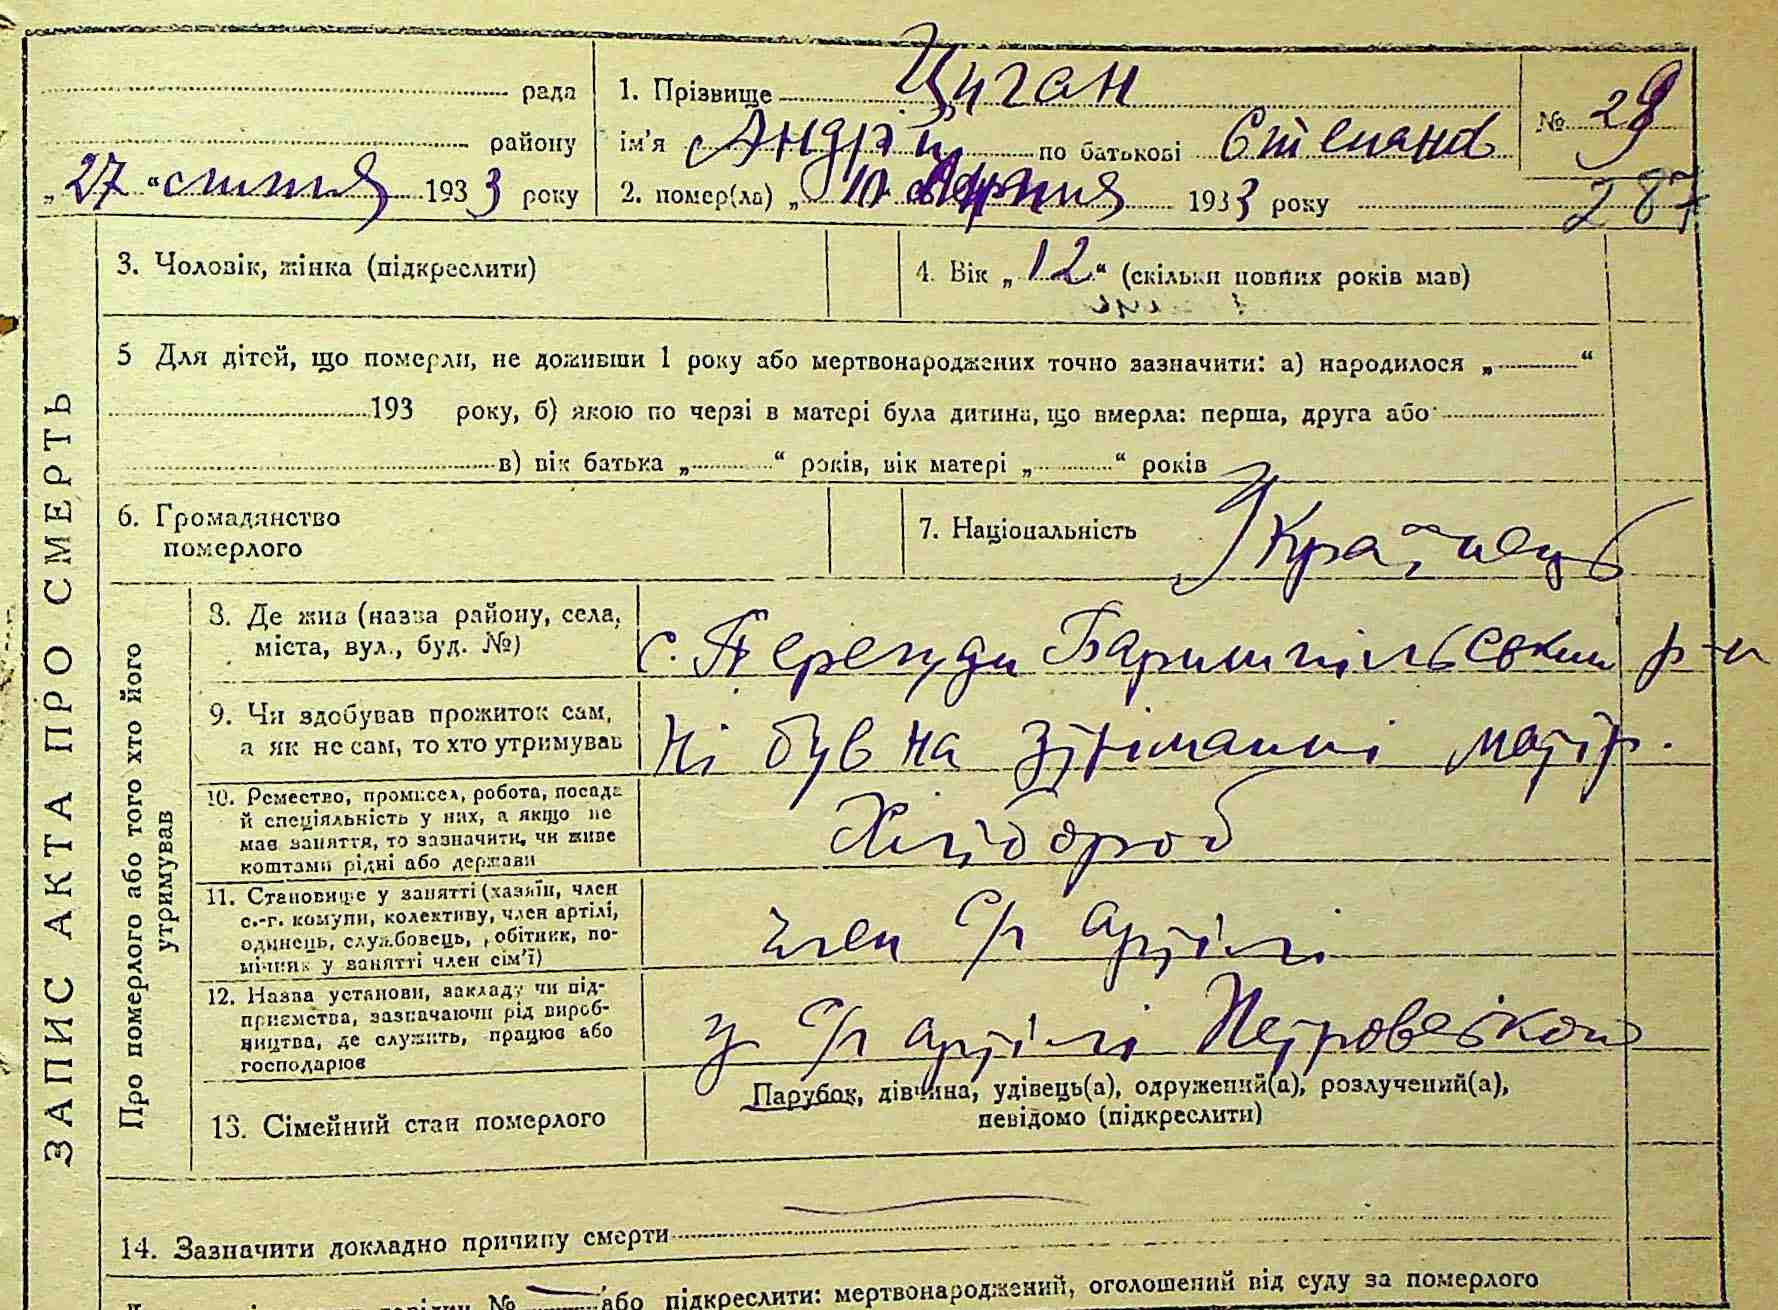 рада
1. Прізвище Циган
№ 29
району
ім'я Андрій по батькові Степанов
„27“ 1933 року
2. помер(ла) „10 1933 року
287
3. Чоловік, жінка (підкреслити)
4. Вік „12“ (скільки повних років мав)
5 Для дітей, що померли, не доживши 1 року або мертвонароджених точно зазначити: а) народилося „ “
193 року, б) якою по черзі в матері була дитина, що вмерла: перша, друга або
в) вік батька „ “ років, вік матері „ “ років
6. Громадянство
померлого
7. Національність Українець
ЗАПИС АКТА ПРО СМЕРТЬ
Про померлого або того хто його
утримував
8. Де жив (назва району, села,
міста, вул., буд. №)
с. Перегуди Баришпільський р-н
9. Чи здобував прожиток сам,
а як не сам, то хто утримував
ні був на матір.
10. Ремество, промисел, робота, посада
й спеціяльність у них, а якщо не
має заняття, то зазначити, чи живе
коштами рідні або держави
Хлібороб
11. Становище у занятті (хазяїн, член
с.-г. комуни, колективу, член артілі,
одинець, службовець, робітник, по-
мічник у занятті член сім'ї)
член С/г артілі
12. Назва установи, закладу чи під-
приємства, зазначаючи рід вироб-
ництва, де служить, працює або
господарює
у С/г артілі Петровського
13. Сімейний стан померлого
Парубок, дівчина, удівець(а), одружений(а), розлучений(а),
невідомо (підкреслити)
14. Зазначити докладно причину смерти
№ або підкреслити: мертвонароджений, оголошений від суду за померлого